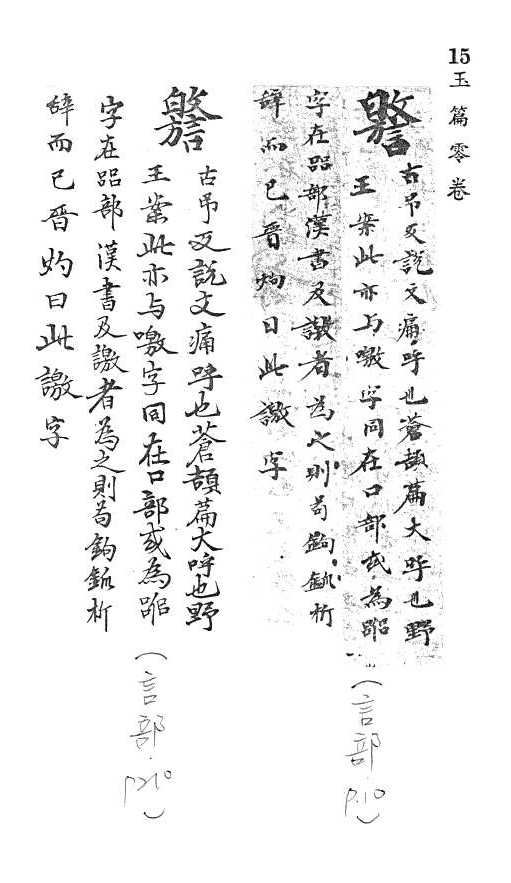 15
玉篇零卷
譥
古吊反說文痛呼也蒼頡篇大呼也野
王案此亦与噭字同在口部或為嘂
字在㗊部漢書及譤者為之則苟鉤鈲析
辝而已晋灼曰此譤字
(言部.P.10)
譥
古吊反說文痛呼也蒼頡篇大呼也野
王案此亦与噭字同在口部或為嘂
字在㗊部漢書及譤者為之則苟鉤鈲析
辝而已晋灼曰此譤字
(言部.P210)